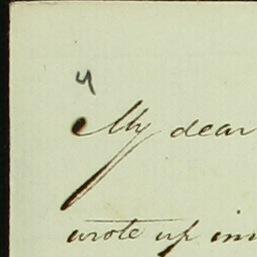 4
My dear
wrote up im